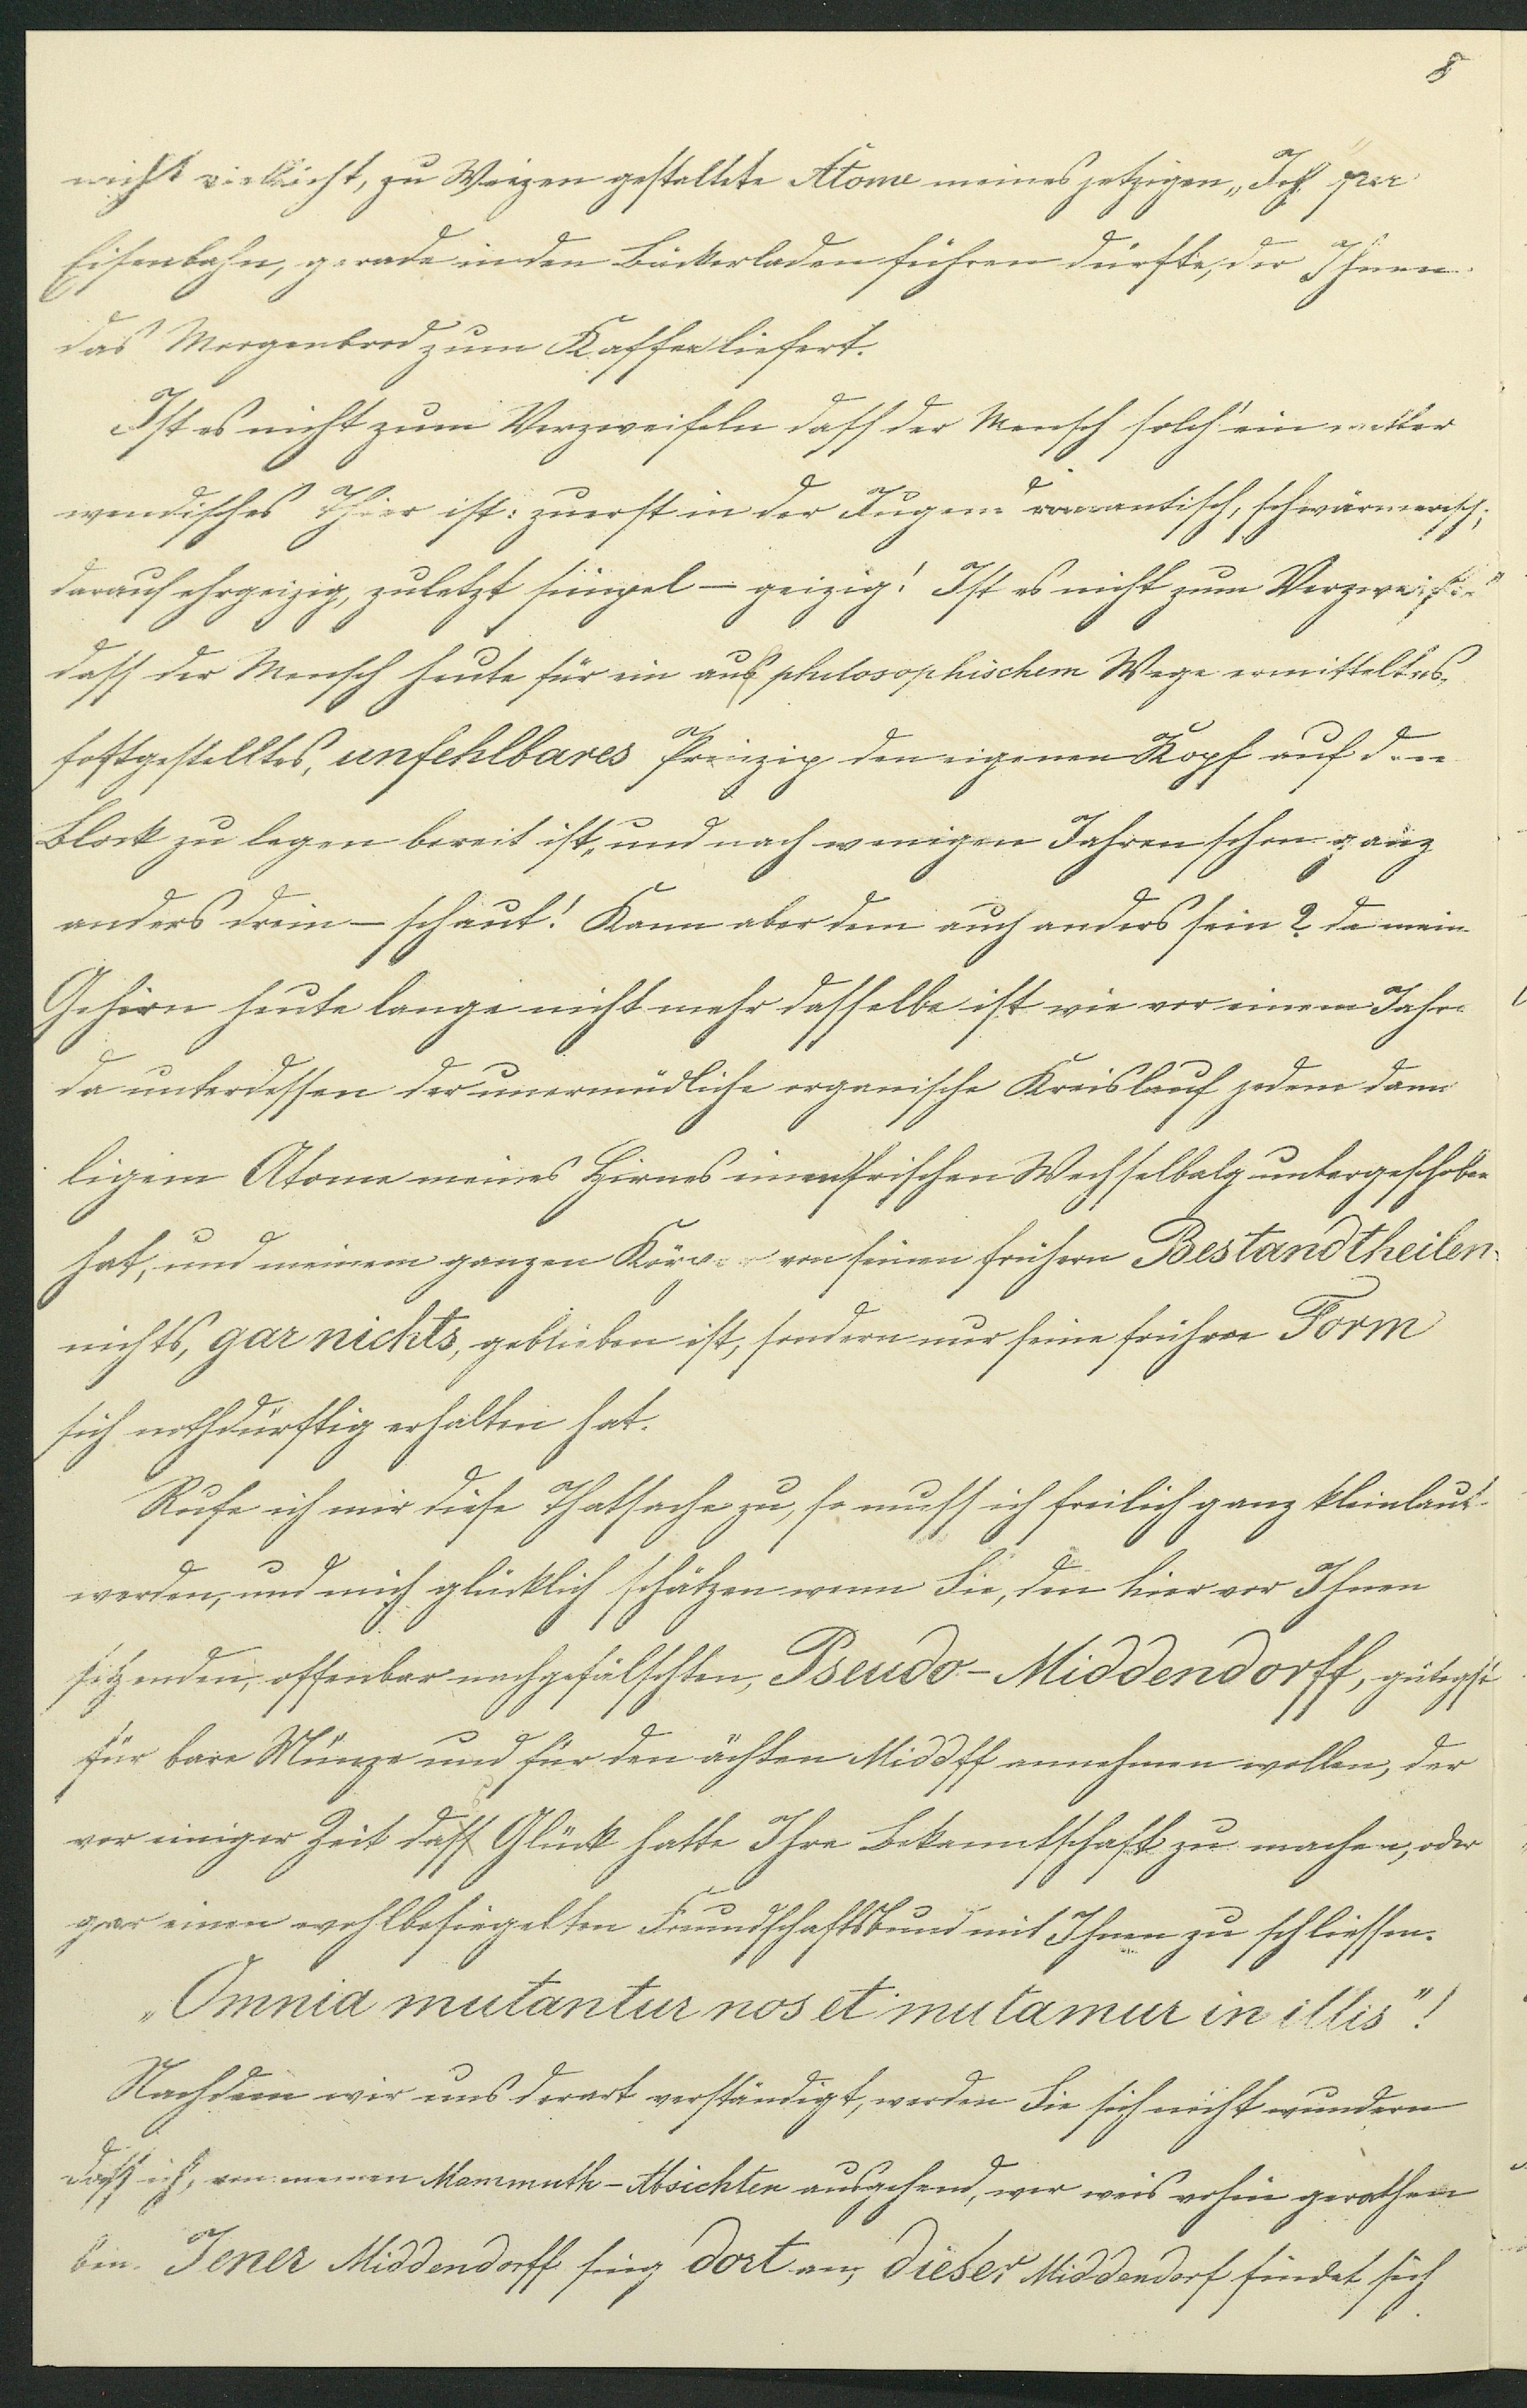 8
nicht vielleicht, zu Weizen gestaltete Atome meines jetzigen „Ich" per
Eisenbahn, gerade in den Bäckerladen führen dürfte, der Ihnen
das Morgenbrod zum Kaffee liefert.
Ist es nicht zum Verzweifeln dass der Mensch solch' ein wetter
wendisches Thier ist: zuerst in der Jugend romantisch, schwärmerisch;
darauf ehrgeizig, zuletzt simpel – geizig! Ist es nicht zum Verzweifeln
dass der Mensch heute für ein auf philosophischem Wege ermitteltes,
festgestelltes, unfehlbares Prinzip den eigenen Kopf auf den
Block zu legen bereit ist, und nach wenigen Jahren schon ganz
anders drein – schaut! Kann aber dem auch anders sein? da mein
Gehirn heute lange nicht mehr dasselbe ist wie vor einem Jahre
da unterdessen der unermüdliche organische Kreislauf jedem dama
ligem Atome meines Hirnes einen frischen Wechselbalg untergeschoben
hat, und meinem ganzen Körper von seinen frühern Bestandtheilen
nichts, gar nichts, geblieben ist, sondern nur seine frühere Form
sich nothdürftig erhalten hat.
Rufe ich mir diese Thatsache zu, so muss ich freilich ganz kleinlaut
werden, und mich glücklich schätzen wenn Sie, den hier vor Ihnen
sitzenden, offenbar nachgefälschten, Pseudo-Middendorff, gütigst
für bare Münze und für den ächten Middff annehmen wollen, der
vor einiger Zeit das Glück hatte Ihre Bekanntschaft zu machen, oder
gar einen wohlbesiegelten Freundschaftsbund mit Ihnen zu schliessen.
„Omnia mutantur nos et mutamur in illis"!
Nachdem wir uns derart verständigt, werden Sie sich nicht wundern
dass ich, von meinen Mammuth-Absichten ausgehend, wer weis wohin gerathen
bin. Jener Middendorff fing dort an, dieser Middendorf findet sich